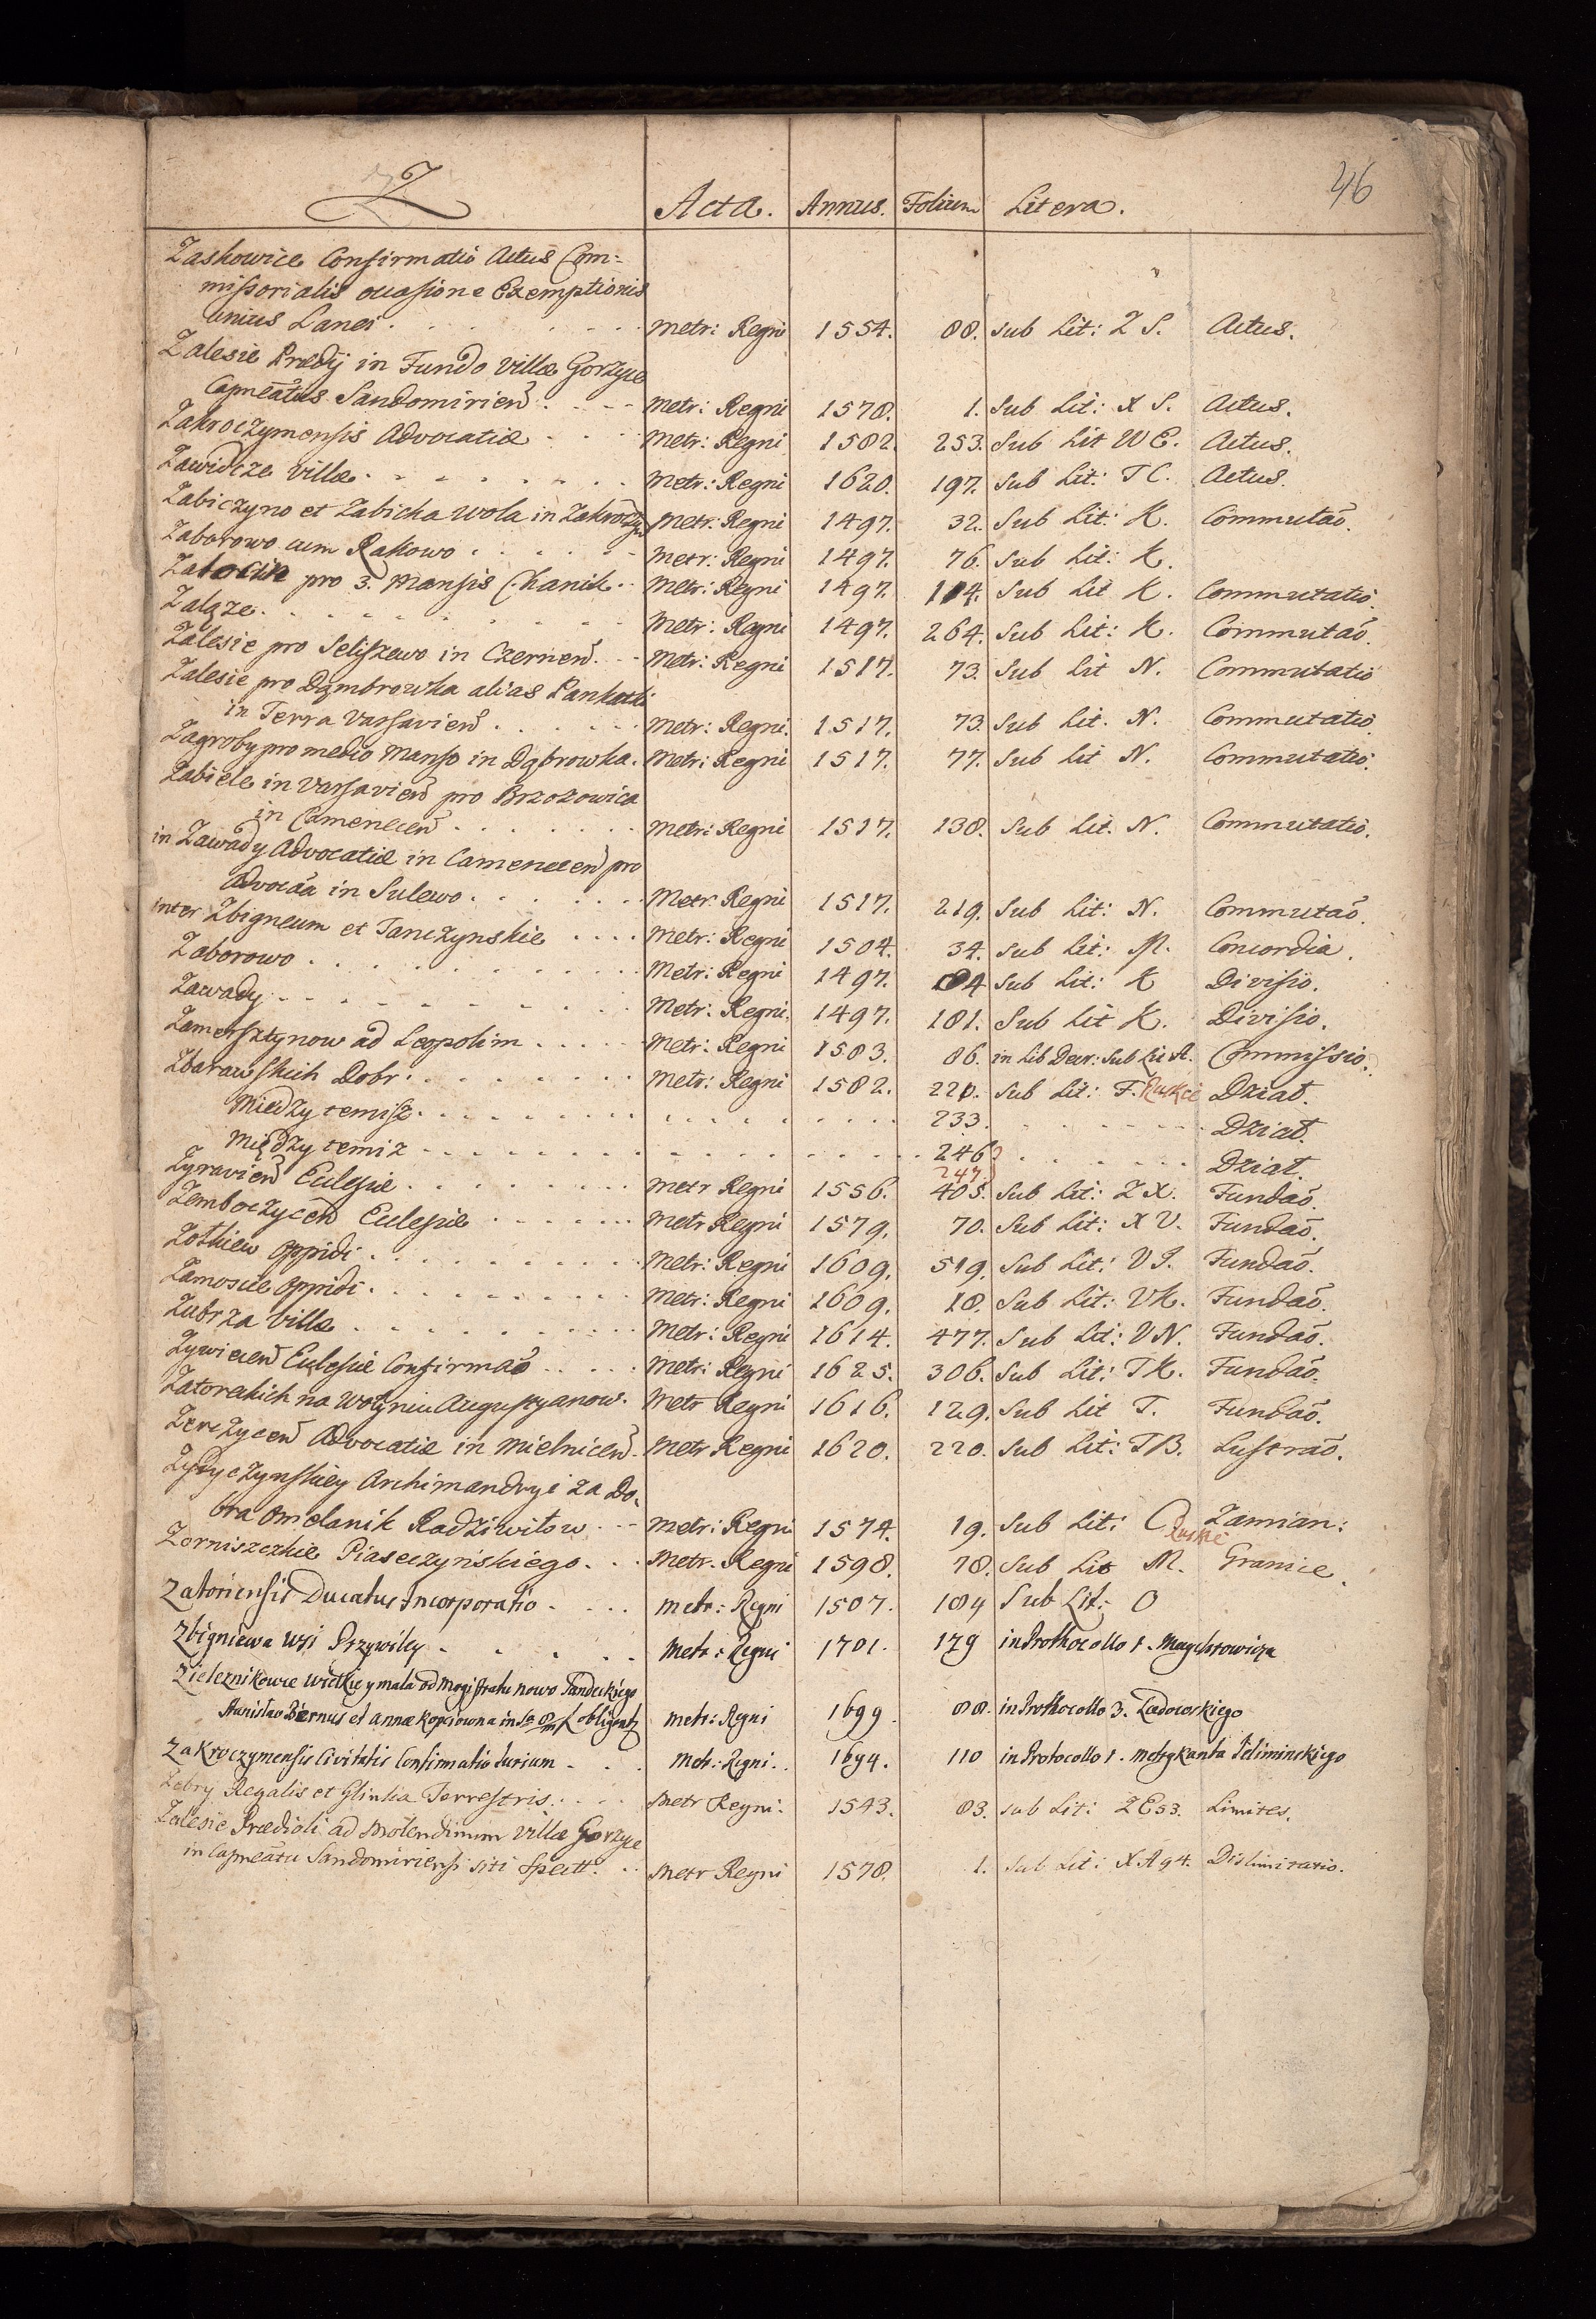 46
Z Acta. Annus. Folium Litera.
Zaskowice Confirmatio Actus Com:
missorialis occasione Exemptionis
unius Lanei. Metr: Regni 1554. 88. sub Lit: Z S. Actus.
Zalesie Prædij in Fundo villæ Gorzyce
Capneatus Sandomirien. Metr: Regni 1578. 1. Sub Lit: X S. Actus.
Zakroczymensis Advocatiæ Metr: Regni 1582. 253. Sub Lit W E. Actus.
Zawidcze villæ. Metr: Regni 1620. 197. Sub Lit: T C. Actus.
Zabiczyno et Zabicka Wola in Zakroczy Metr: Regni 1497. 32. Sub Lit: K. Commutaō.
Zaborowo cum Rakowo. Metr: Regni 1497. 76. Sub Lit: K.
pro 3. Mansis Chanik. Metr: Regni 1497. 114. Sub Lit K. Commutatio.
Zaląze. Metr: Regni 1497. 264. Sub Lit: K. Commutaō.
Zalesie pro Seliszewo in Czernen. Metr: Regni 1517. 73. Sub Lit N. Commutatio
Zalesie pro Dąmbrowka alias
in Terra Varsavien. Metr: Regni. 1517. 73. Sub Lit. N. Commutatio
Zagroby pro medio Manso in Dąbrowka. Metr: Regni 1517. 77. Sub Lit N. Commutatio.
Zabiele in Varsavien pro Brzozowica
in Camenecen. Metr: Regni 1517. 138. Sub Lit. N. Commutatio.
in Zawady Advocatiæ in Camenecen pro
Advocāa in Sulewo. Metr: Regni 1517. 219. Sub Lit: N. Commutaō.
inter Zbigneum et Tanczynskie Metr: Regni 1504. 34. Sub Lit: M. Concordia.
Zaborowo. Metr: Regni 1497. 184 Sub Lit: K Divisio.
Zawady Metr: Regni. 1497. 181. Sub Lit K. Divisio.
Zamersztynow ad Leopolim. Metr: Regni 1583. 86. in Lib Decr: Sub Lit A. Commissio.
Zbarawskich Dobr. Metr: Regni 1582. 220. Sub Lit: F. Ruskie Dział.
Miedzy temisz. 233. Dział.
Między temiż 246 247. Dział.
Zyravien Ecclesiæ. Metr Regni 1556. 405. Sub Lit: Z X. Fundaō.
Zemboczycen Ecclesiæ Metr Regni 1579. 70. Sub Lit: X V. Fundaō.
Zołkiew Oppidi. Metr: Regni 1609. 519. Sub Lit: V J. Fundaō.
Zamoscie Oppidi. Metr: Regni 1609. 18. Sub Lit: VK. Fundaō.
Zubrza villæ Metr: Regni 1614. 477. Sub Lit: V N. Fundaō.
Zywiecen Ecclesiæ Confirmaō Metr: Regni 1625. 306. Sub Lit: TK. Fundaō.
Zatorskich na Wołyniu Augustyanow. Metr Regni 1616. 129. Sub Lit T. Fundaō.
Zerczycen Advocatiæ in Mielnicen. Metr Regni 1620. 220. Sub Lit: TB. Lustraō.
Zydyczynskiey Archimandryi za Do-
bra Omelanik Radziwiłow. Metr: Regni 1574. 19. Sub Lit: C Ruskie Zamian:
Zorniszczkie Piaseczyńskiego. Metr. Regni 1598. 78. Sub Lit M. Granice.
Zatoriensis Ducatus Incorporatio. metr: Regni 1507. 104 Sub Lit: O
Zbigniewa Wsi Przywiley Metr: Regni 1701. 179 in Prothocollo 1.
Zieleznikowie Wielkie y mała od Magistratu Nowo Sandeckiego
Stanislao Biernus et annæ Kopciowna obligentz metr: Regni 1699. 88. in Prothocollo 3. Zadorskiego
Zakroczymensis Civitatis Confirmatio Iurium Metr: Regni. 1694. 110 in Protocollo 1. metrykanta
Zebry Regalis et Glinka Terrestris. Metr Regni: 1543. 83. sub Lit: Z E 53. Limites.
Zalesie Prædioli ad Molendinum villæ Gorzyce
in Capneātu Sandomiriensi siti Spectt: Metr Regni 1578. 1. Sub Lit: X A 94. Dislimitatio.